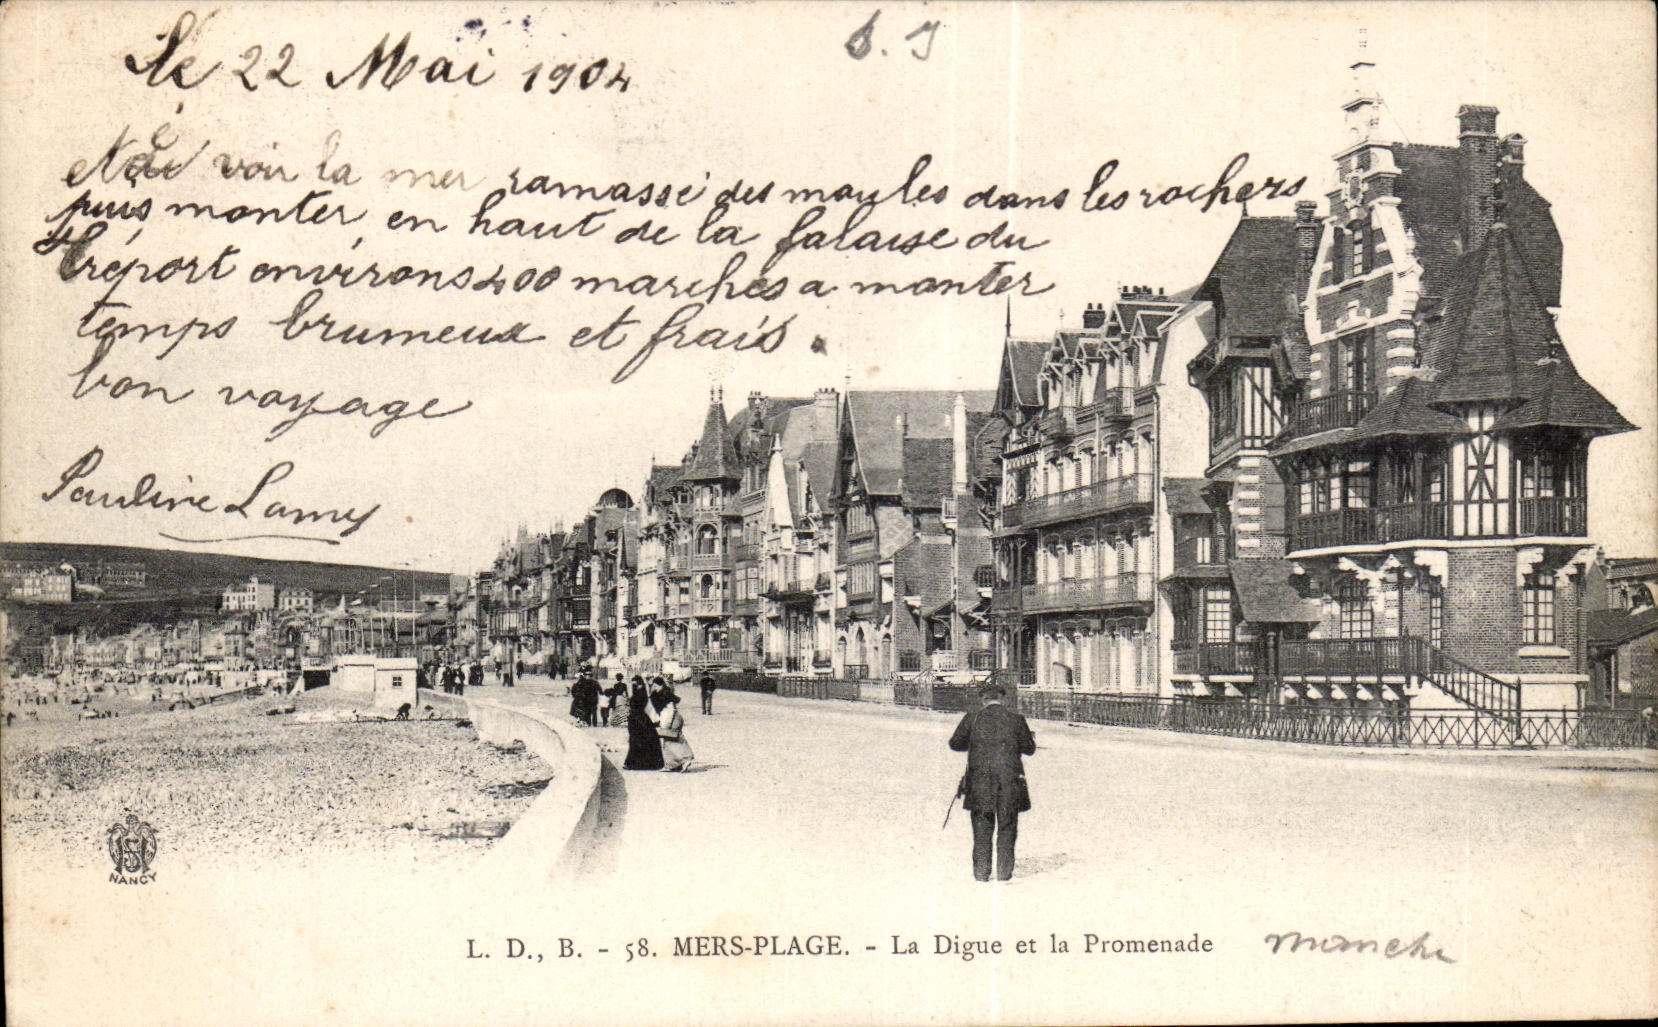 6. 9
Le 22 Mai 1904
voir la mer ramassé des moules dans les rochers
puis monter en haut de la falaise du
tréport environs 400 marches a monter
temps brumeux et frais.
bon voyage
Pauline Lamy
NANCY
L. D., B. - 58. MERS-PLAGE. - La Digue et la Promenade
manche